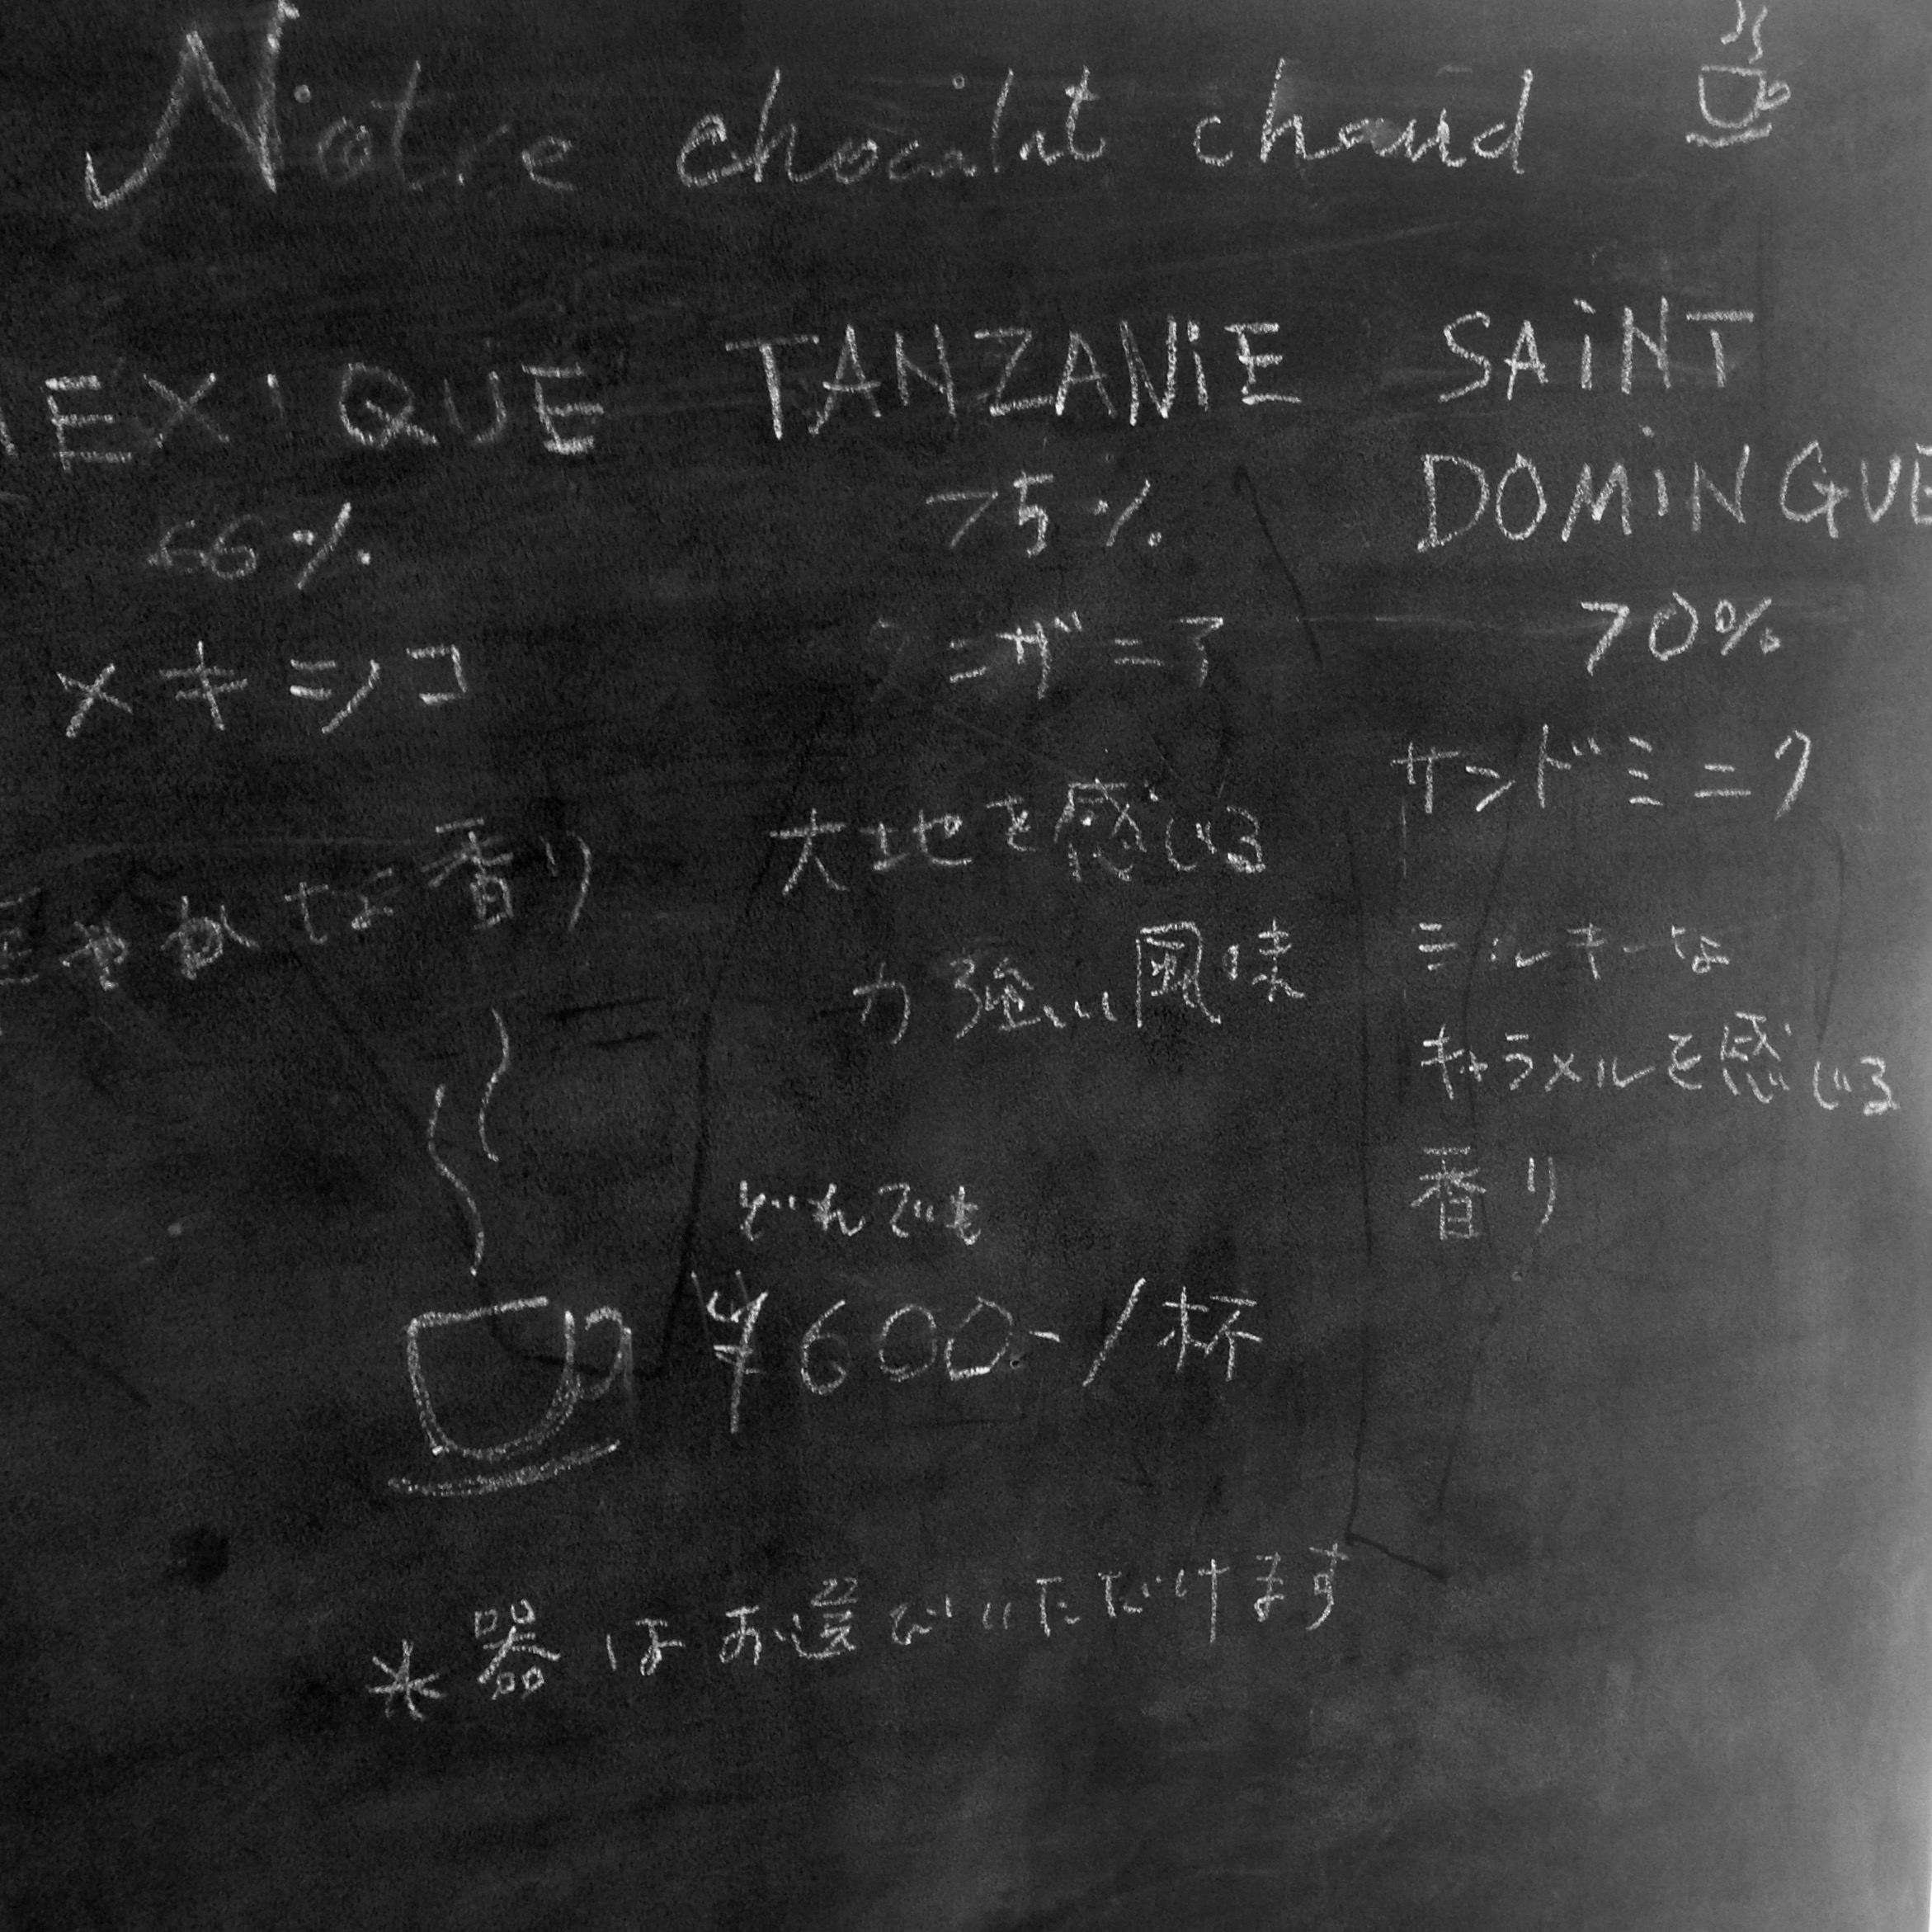 Notre chocolat chaud
MEXIQUE
66%
メキシコ
やかな香り
TANZANIE
75%
タンザニア
大地を感じる
力強い風味
SAINT
DOMINGUE
70%
サンドミニク
ミルキーな
キャラメルを感じる
香り
どれでも
¥600-/杯
*器はお選びいただけます